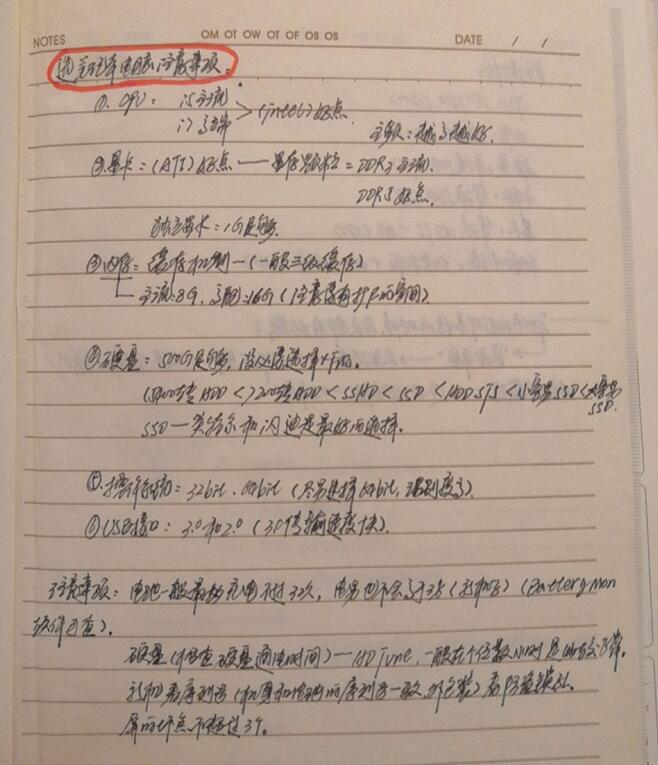 NOTES OM OT OW OT OF OS OS DATE / /
选笔记本电脑注意事项。
①. CPU: i5主流 > (intel)好点
i7高端 主频:越高越好.
②显卡:(ATI)好点 — 显存颗粒=DDR3主流.
DDR5好点.
独立显卡:1G足够.
③内存:缓存机制—(一般三级缓存)
主流:8G,高配:16G(注意留有扩展的空间)
④硬盘:500G足够,没必要选择太高.
(5400转HDD<7200转HDD<SSHD<SSD<HDD.STS<小容量SSD<大容量SSD.
SSD—英特尔和闪迪是最好的选择.
⑤.操作系统:32bit.64bit(尽量选择64bit,识别度高).
⑥USB接口:3.0和2.0(3.0传输速度快).
注意事项:电池一般最初充电不过3次,电量也不会高于3%(新机器)(Battery mon
软件可查).
硬盘(检查硬盘通电时间)—HD Tune,一般在个位数小时是比较正常.
新机看序列号(机身和的序列号一致,外包装)看
屏的坏点不超过3个.